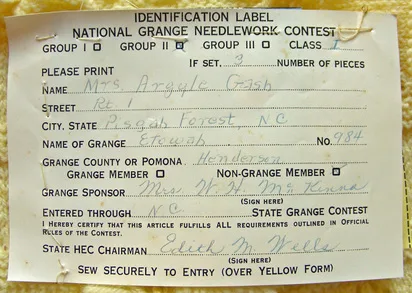 IDENTIFICATION LABEL
NATIONAL GRANGE NEEDLEWORK CONTEST
GROUP I □ GROUP II ☑ GROUP III □ CLASS I
IF SET, 3 NUMBER OF PIECES
PLEASE PRINT
NAME Mrs. Argyle Gash
STREET Rt 1
CITY, STATE Pisgah Forest, NC
NAME OF GRANGE Etowah No. 984
GRANGE COUNTY OR POMONA Henderson
GRANGE MEMBER □ NON-GRANGE MEMBER □
GRANGE SPONSOR Mrs. W. H. McKinna
(SIGN HERE)
ENTERED THROUGH NC STATE GRANGE CONTEST
I HEREBY CERTIFY THAT THIS ARTICLE FULFILLS ALL REQUIREMENTS OUTLINED IN OFFICIAL
RULES OF THE CONTEST.
STATE HEC CHAIRMAN Edith M. Wells
(SIGN HERE)
SEW SECURELY TO ENTRY (OVER YELLOW FORM)